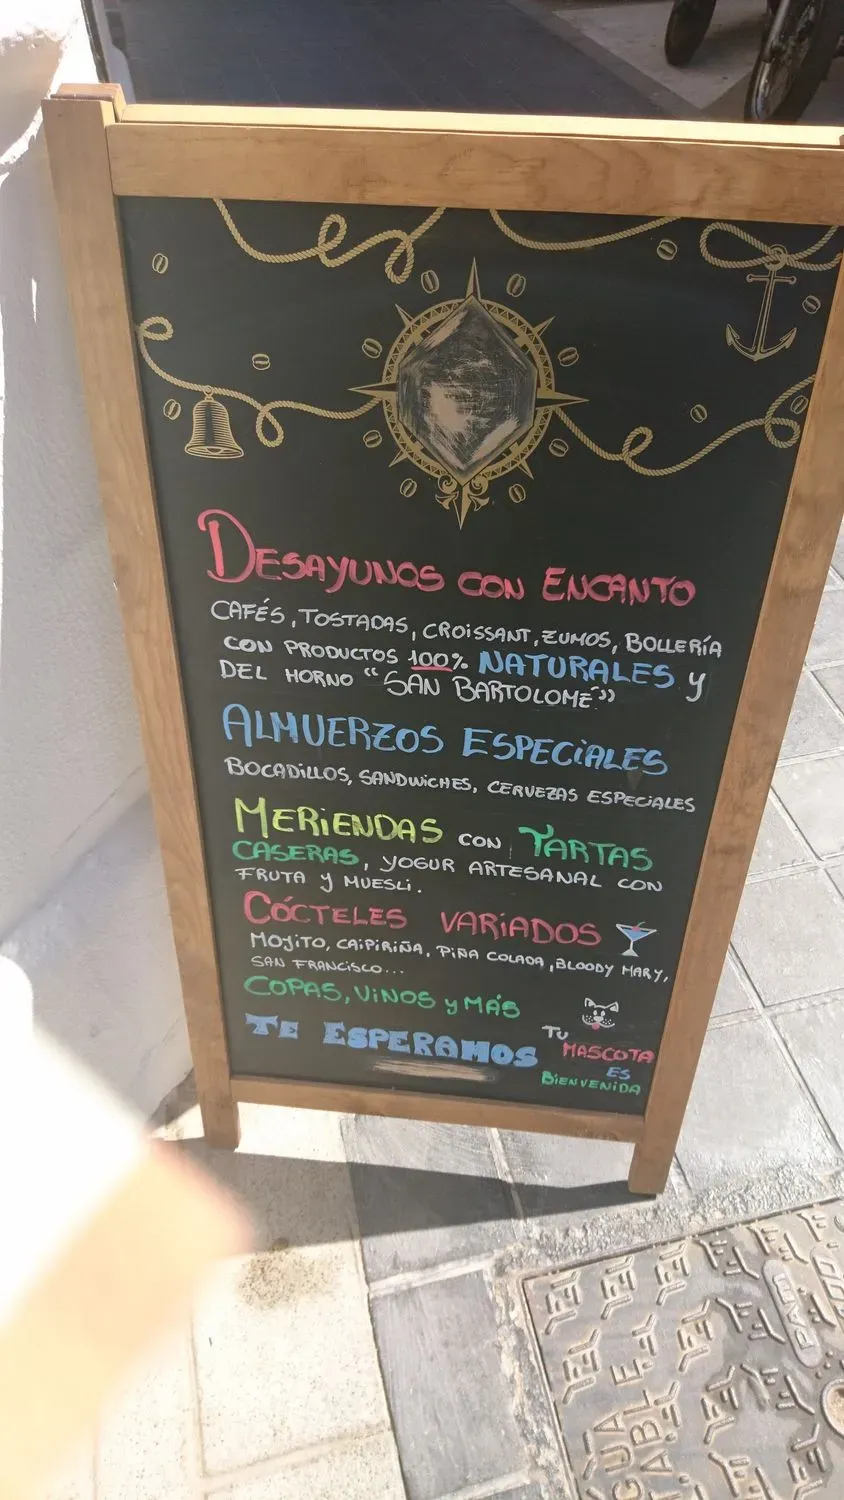 DESAYUNOS CON ENCANTO
CAFÉS, TOSTADAS, CROISSANT, ZUMOS, BOLLERÍA
CON PRODUCTOS 100% NATURALES y
DEL HORNO "SAN BARTOLOMÉ"
ALMUERZOS ESPECIALES
BOCADILLOS, SANDWICHES, CERVEZAS ESPECIALES
MERIENDAS CON TARTAS
CASERAS, YOGUR ARTESANAL CON
FRUTA Y MUESLI.
CÓCTELES VARIADOS
MOJITO, CAIPIRIÑA, PIÑA COLADA, BLOODY MARY,
SAN FRANCISCO...
COPAS, VINOS y MÁS
TE ESPERAMOS
TU
MASCOTA
ES
BIENVENIDA
TEL
TEL
TEL
TEL